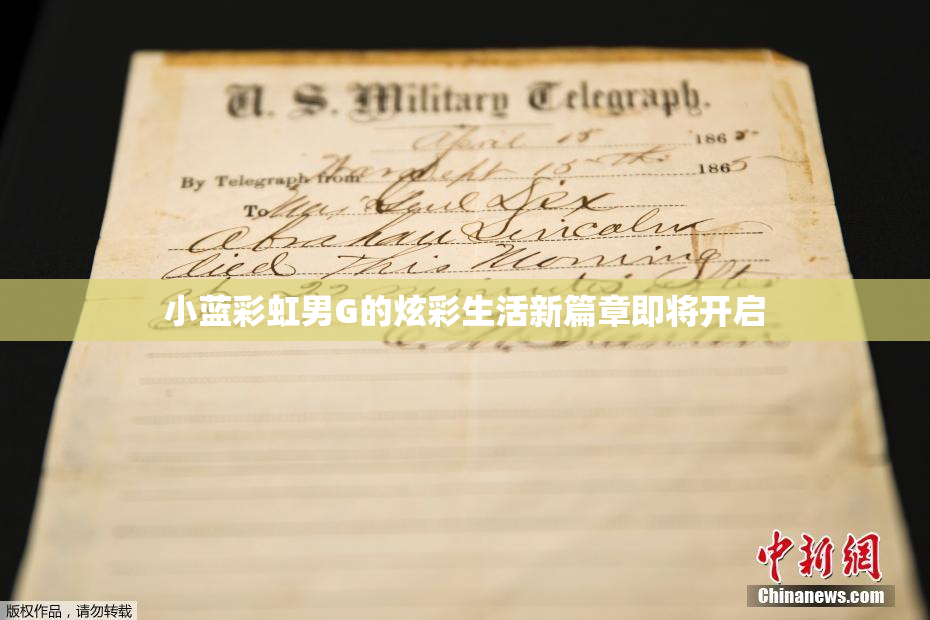 U. S. Military Telegraph.
April 15 1865
By Telegraph from War Dept 15th 1865
To Maj Genl Dix
Abraham Lincoln
died This Morning
at 22 minutes after
小蓝彩虹男G的炫彩生活新篇章即将开启
E. M. Stanton
中新网
Chinanews.com
版权作品，请勿转载